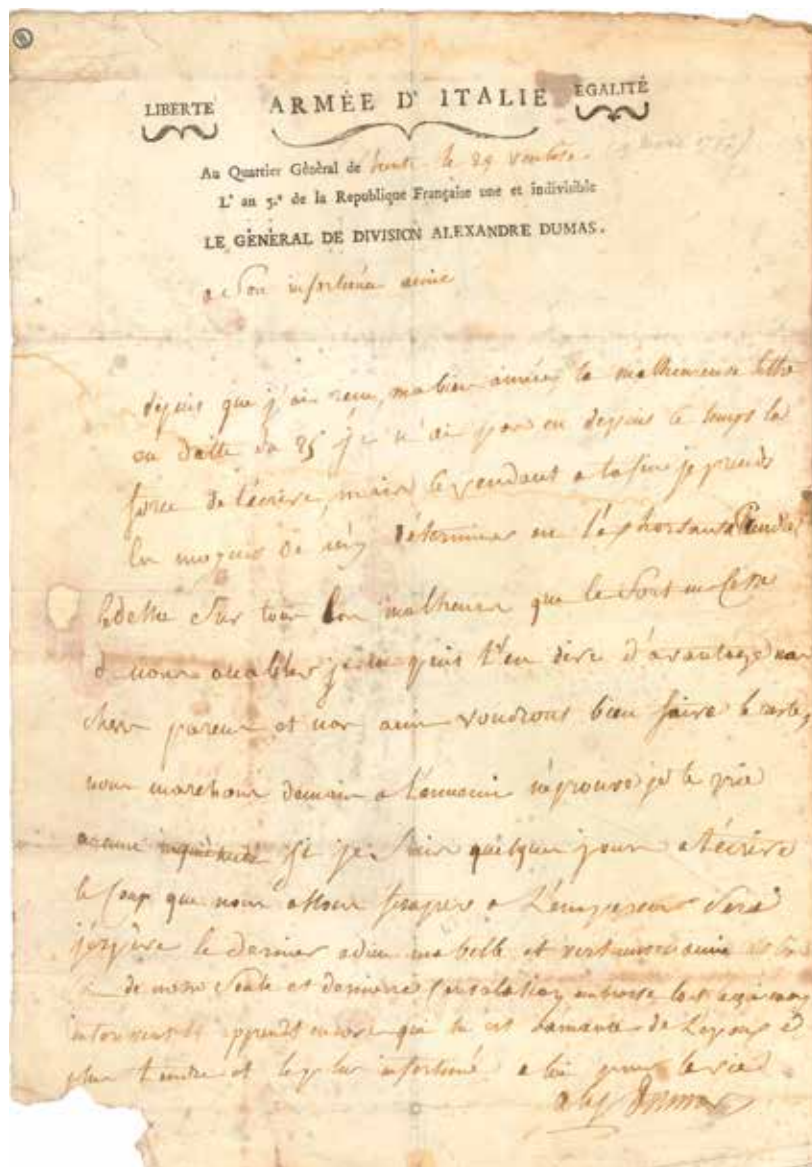 LIBERTÉ ARMÉE D'ITALIE EGALITÉ
Au Quartier Général de le 29 ventose.
L'an 5.e de la Republique Française une et indivisible
LE GÉNÉRAL DE DIVISION ALEXANDRE DUMAS.
a son infortunée amie
depuis que j'ai recu, ma bien aimée, ta malheureuse lettre
en datte du 25 je n'ai pas eu depuis ce temps la
force de t'écrire, mais cependant a la fin je prends
les moyens de m'y déterminer en
sur tous les malheurs que le sort ne cesse
de nous accabler je ne puis t'en dire d'avantage nos
chers parens et nos amis voudrons bien faire le reste,
nous marchons demain a l'ennemi n'eprouve je te prie
aucune inquiétude si je suis quelques jours a t'écrire
le coup que nous allons fraper a l'empereur sera
j'espère le dernier adieu ma belle et vertueuse amie
de notre seule et derniere consolation embrasse
apprends encore que tu es l'amante de l'epoux le
plus tendre et le plus infortuné a toi pour la vie
alex Dumas